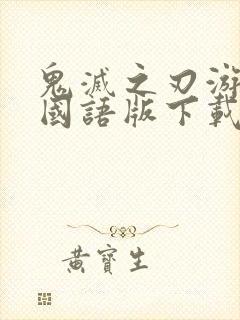 鬼滅之刃游
國語版下載
黃寶生